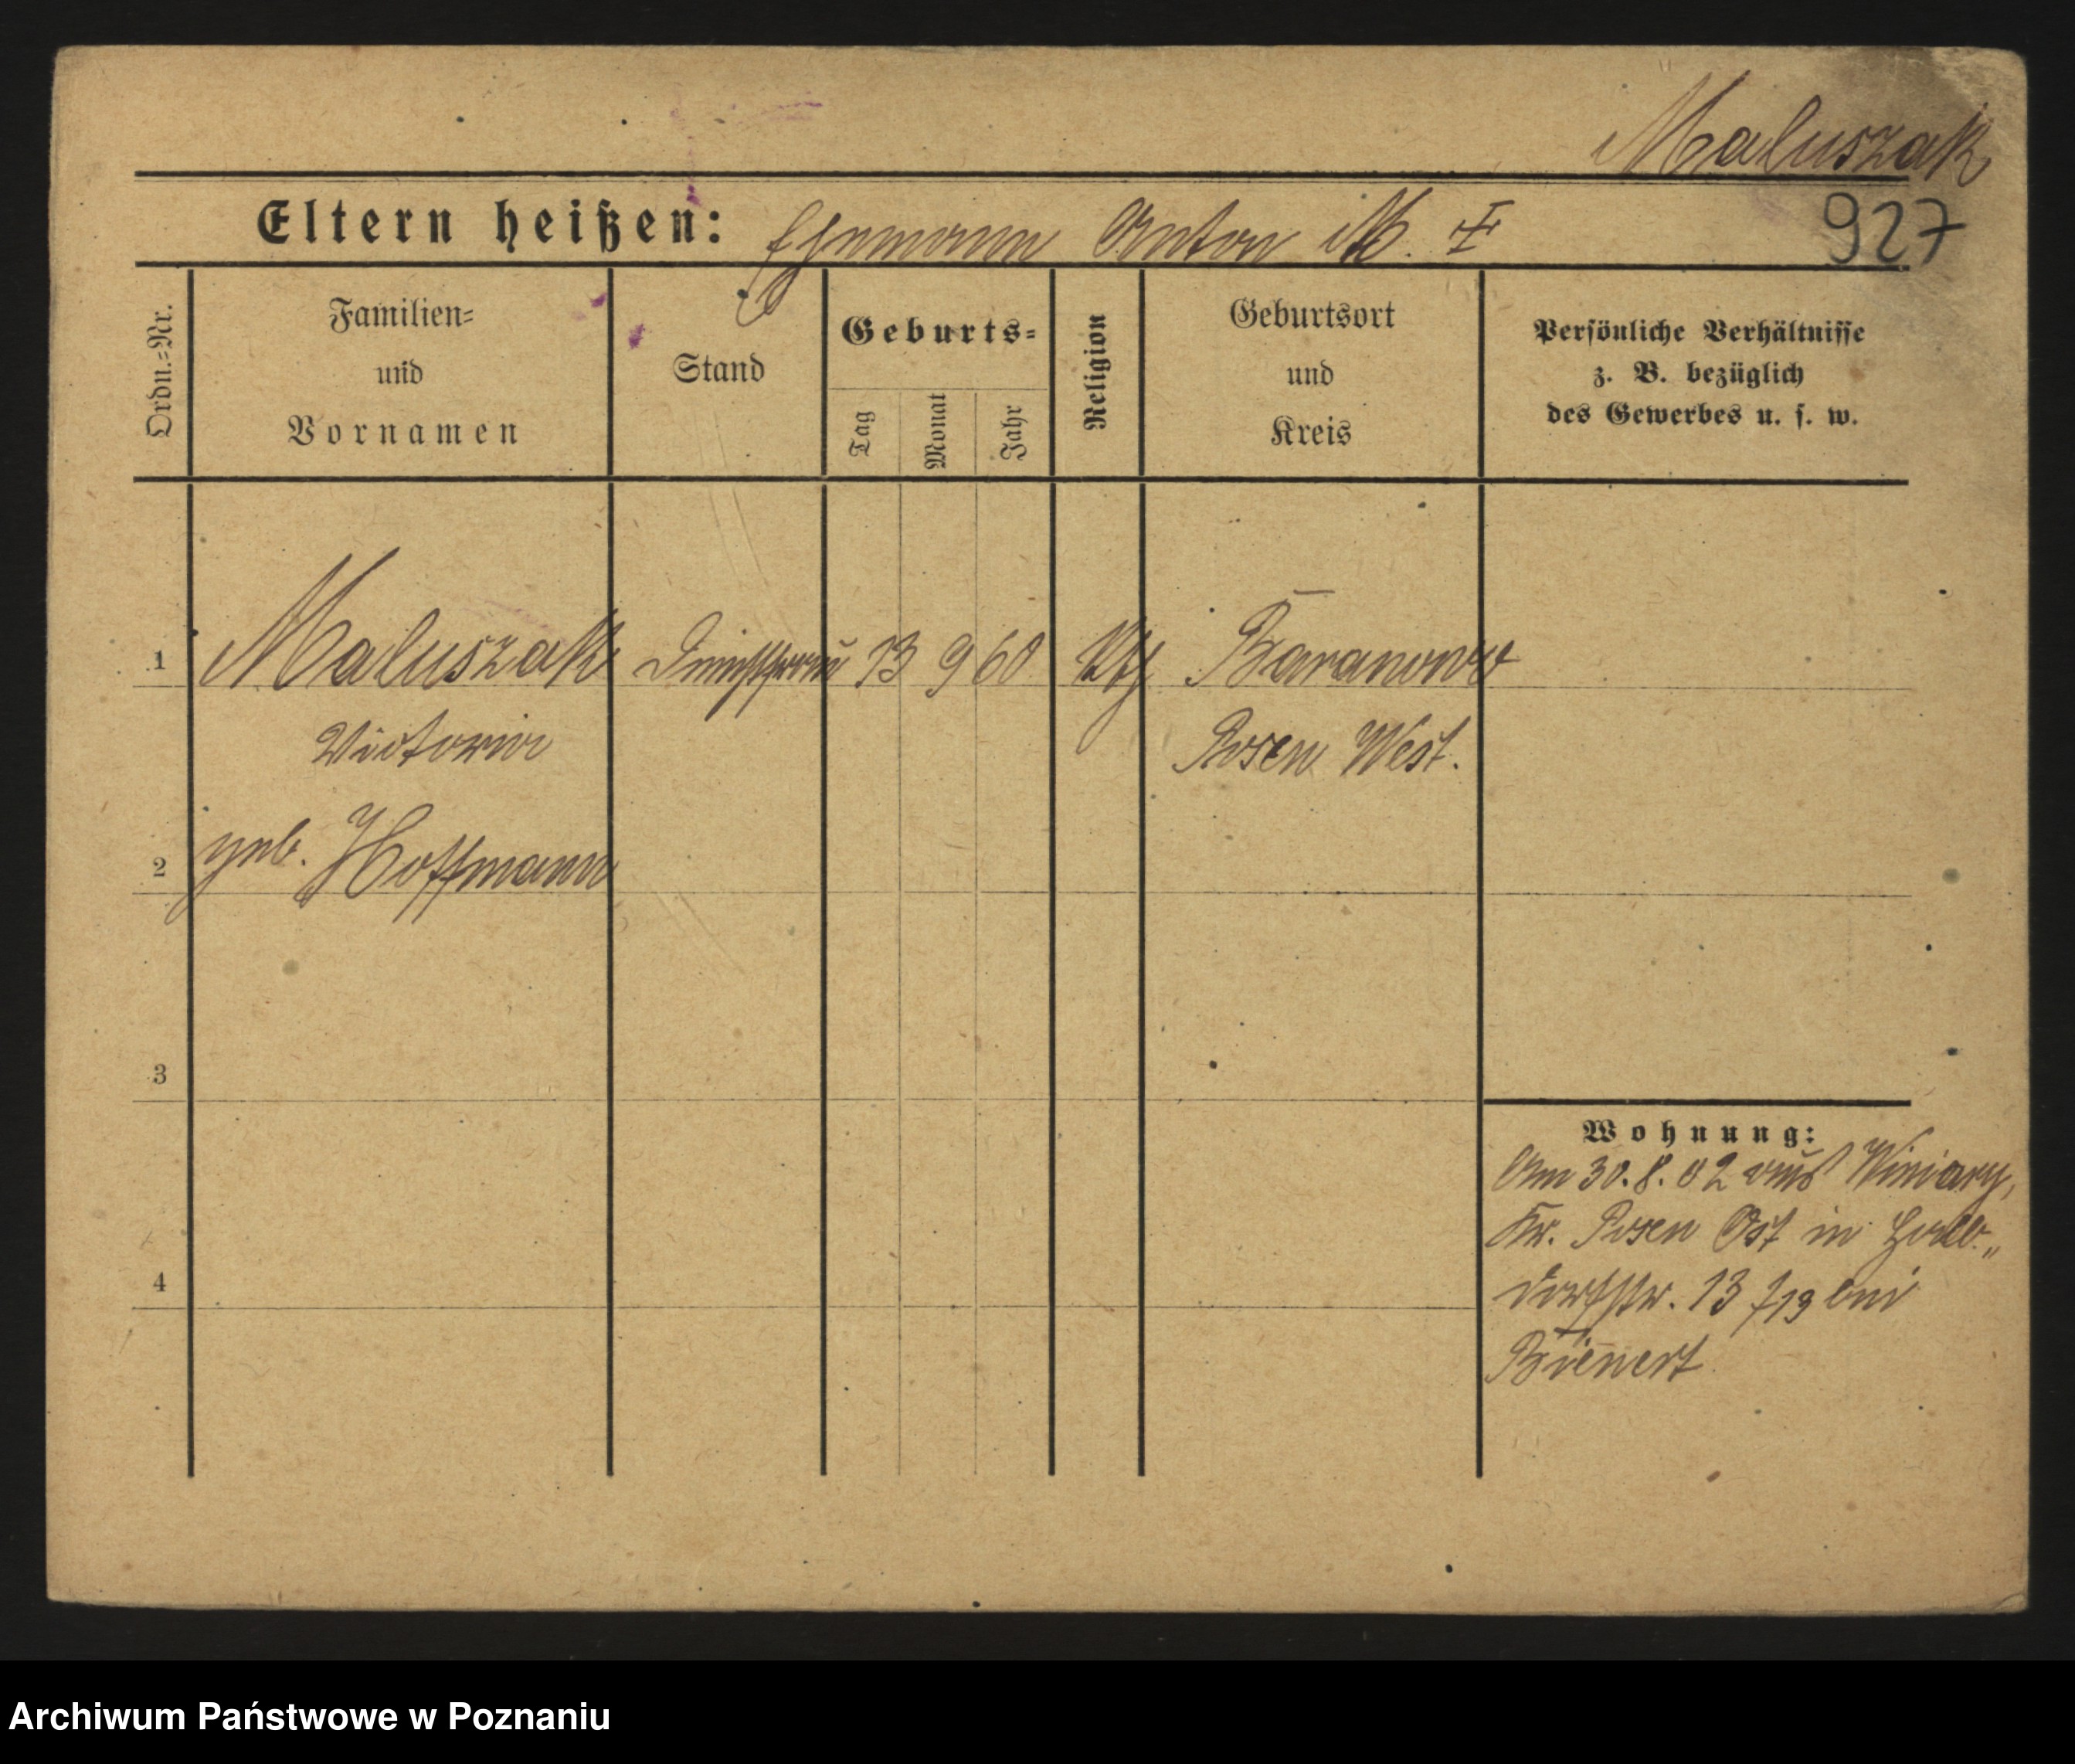 Maluszak
Eltern heißen: Ehemann Anton M. ‡
927
Ordn.=Nr.
Familien=
und
Vornamen
Stand
Geburts=
Tag
Monat
Jahr
Religion
Geburtsort
und
Kreis
Persönliche Verhältnisse
z. B. bezüglich
des Gewerbes u. s. w.
1 Maluszak 13 9 60 kth Baranowo
Victoria Posen West.
2 geb. Hoffmann
3
4
Wohnung:
Am 30.8.02 aus Winiary,
Kr. Posen Ost in
13 bei
Bienert
Archiwum Państwowe w Poznaniu